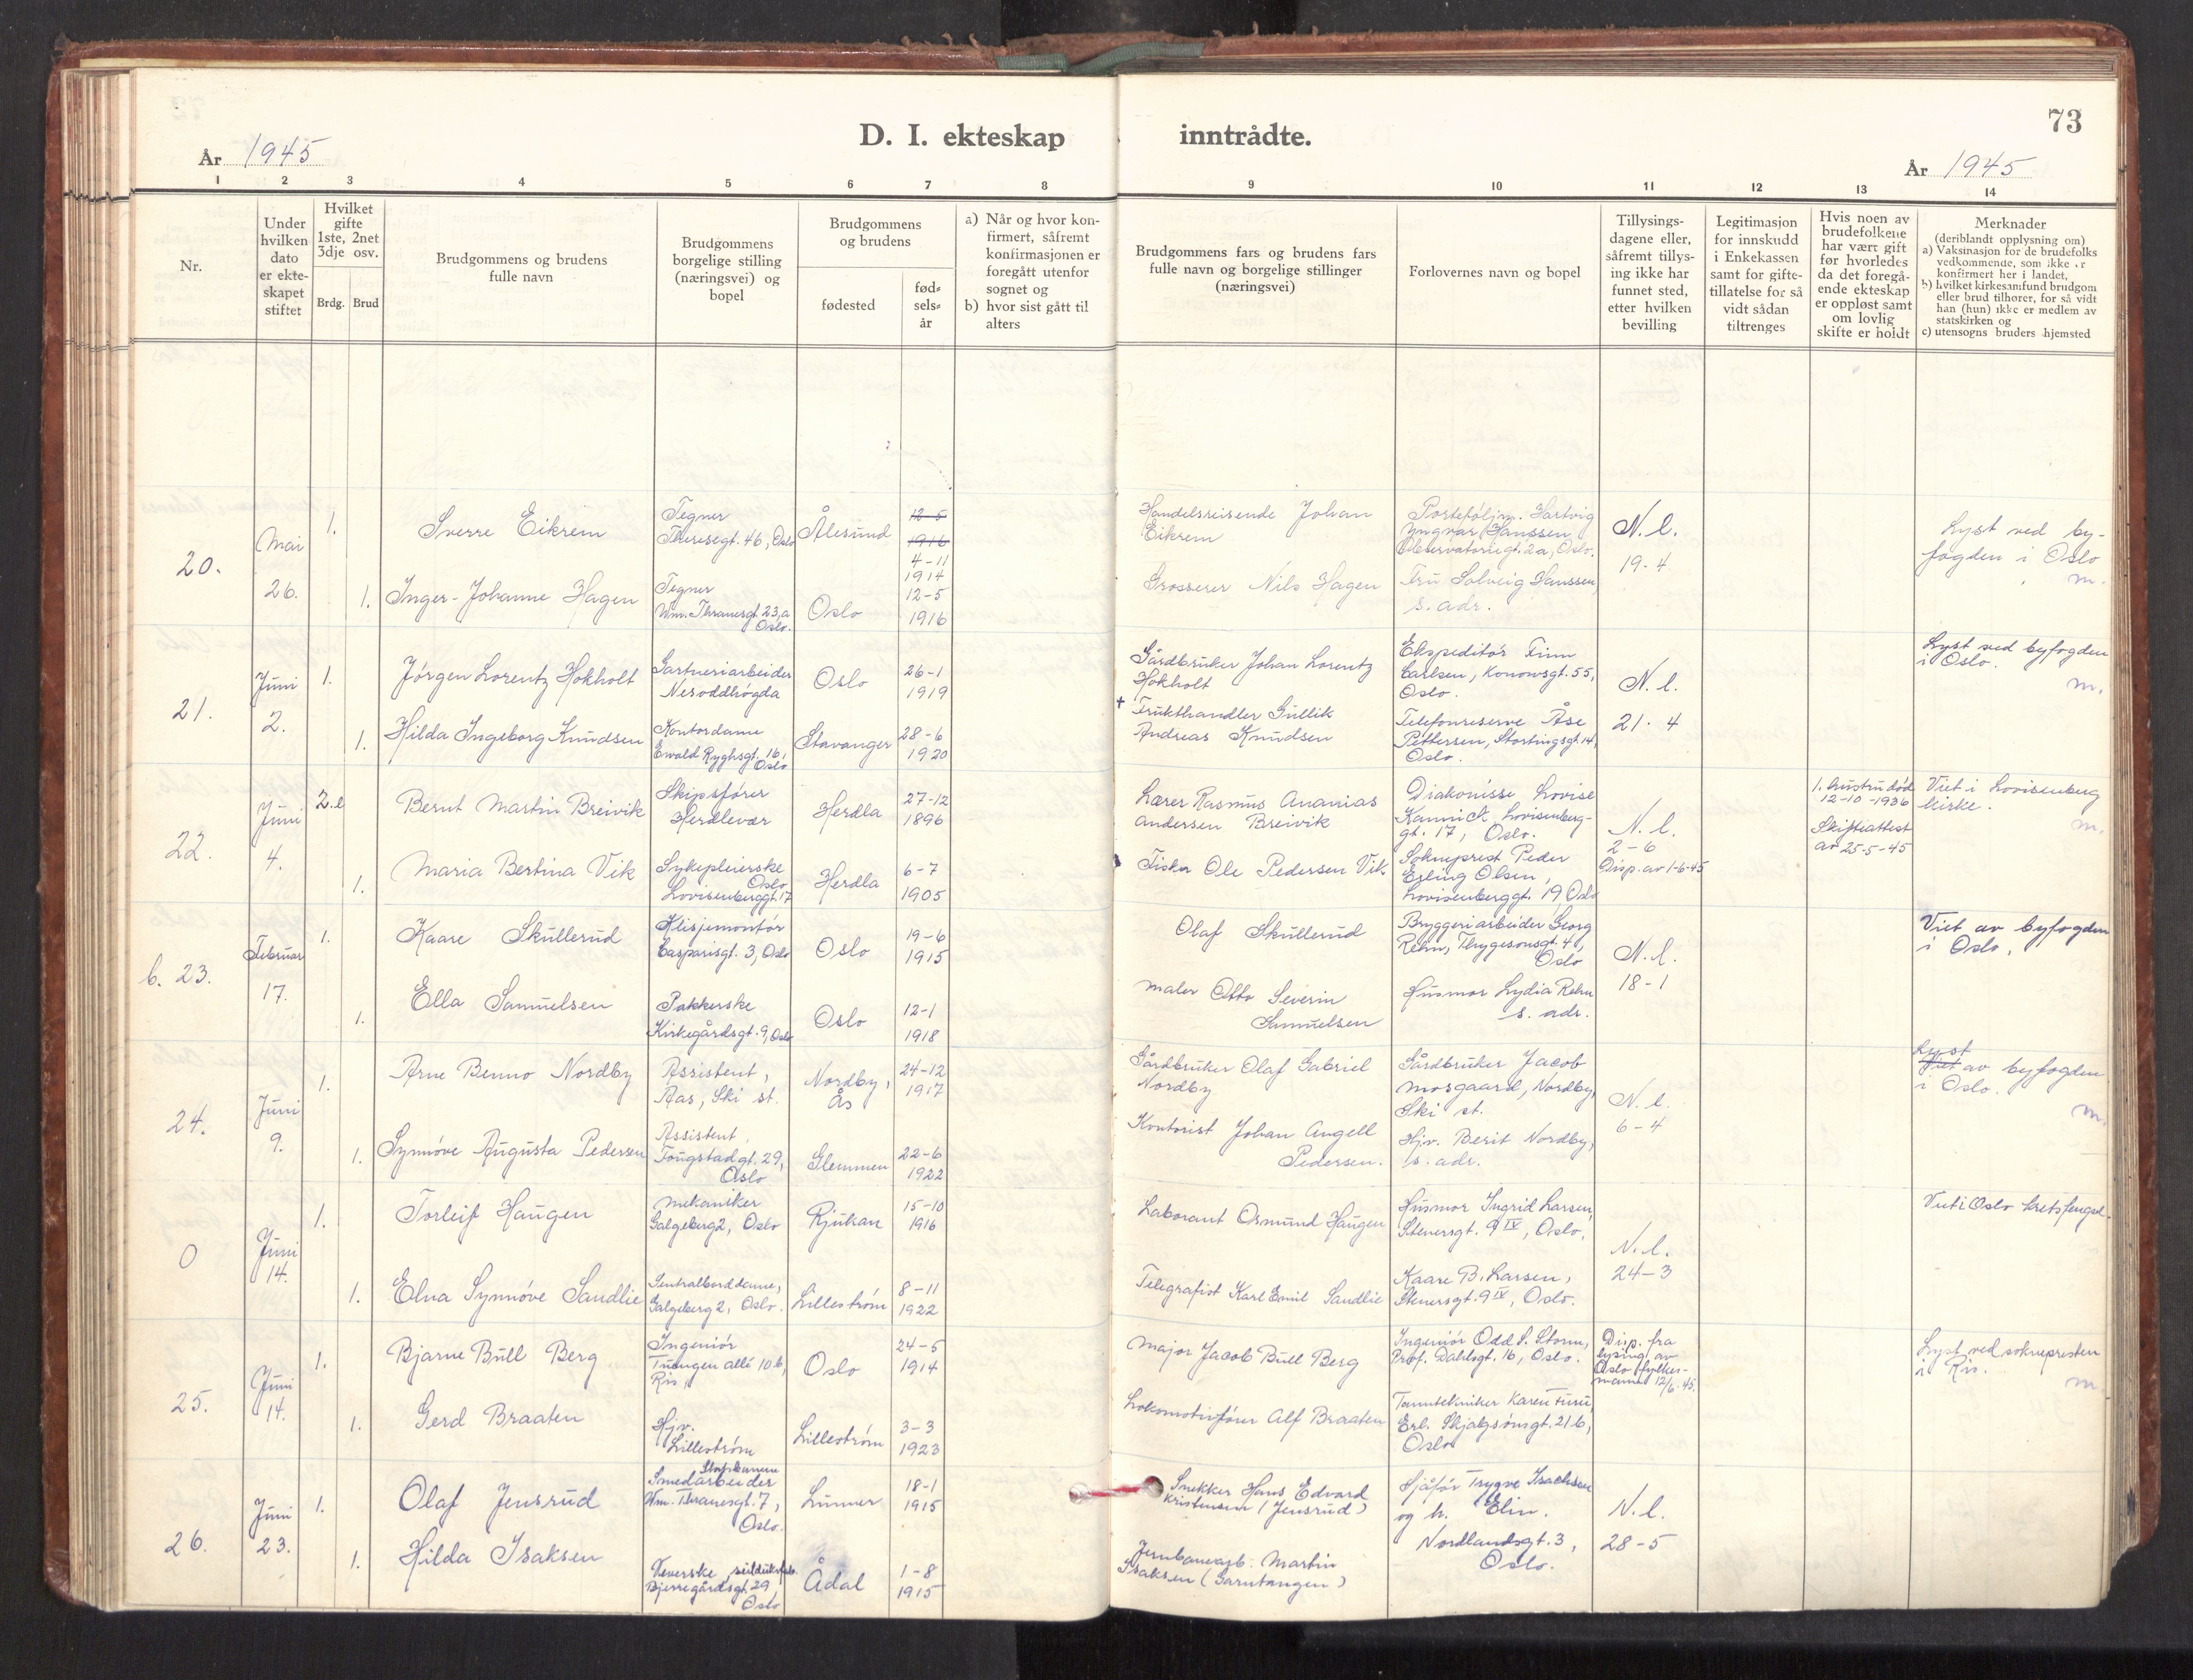 73
D. I. ekteskap inntrådte.
År 1945
År 1945
1 2 3 4 5 6 7 8 9 10 11 12 13 14
Nr.
Under
hvilken
dato
er ekte-
skapet
stiftet
Hvilket
gifte
1ste, 2net
3dje osv.
Brdg. Brud
Brudgommens og brudens
fulle navn
Brudgommens
borgelige stilling
(næringsvei) og
bopel
Brudgommens
og brudens
fødested
fød-
sels-
år
a) Når og hvor kon-
firmert, såfremt
konfirmasjonen er
foregått utenfor
sognet og
b) hvor sist gått til
alters
Brudgommens fars og brudens fars
fulle navn og borgelige stillinger
(næringsvei)
Forlovernes navn og bopel
Tillysings-
dagene eller,
såfremt tillys-
ing ikke har
funnet sted,
etter hvilken
bevilling
Legitimasjon
for innskudd
i Enkekassen
samt for gifte-
tillatelse for så
vidt sådan
tiltrenges
Hvis noen av
brudefolkene
har vært gift
før hvorledes
da det foregå-
ende ekteskap
er oppløst samt
om lovlig
skifte er holdt
Merknader
(deriblandt opplysning om)
a) Vaksinasjon for de brudefolks
vedkommende, som ikke er
konfirmert her i landet,
b) hvilket kirkesamfund brudgom
eller brud tilhører, for så vidt
han (hun) ikke er medlem av
statskirken og
c) utensogns bruders hjemsted
20.
Mai
26.
1.
Sverre Eikrem
Tegner
Theresegt. 46, Oslo
Ålesund
12-5
1916
4-11
1914
Handelsreisende Johan
Eikrem
Porteføljm. Hartvig
Yngvar Hanssen
Observatoriegt. 2a, Oslo.
N.l.
19-4
Lyst ved by-
fogden i Oslo
m.
1.
Inger-Johanne Hagen
Tegner
Wm. Thranesgt. 23,a
Oslo.
Oslo
12-5
1916
Grosserer Nils Hagen
Fru Solveig Hanssen,
s. adr.
21.
Juni
2.
1.
Jørgen Lorentz Hokholt
Gartneriarbeider
Nesoddhøgda
Oslo
26-1
1919
Gårdbruker Johan Lorentz
Hokholt
Ekspeditør Finn
Carlsen, Konowsgt. 55,
Oslo.
N.l.
21-4
Lyst ved byfogden
i Oslo.
m.
1.
Hilda Ingeborg Knudsen
Kontordame
Ewald Ryghsgt. 16,
Oslo
Stavanger
28-6
1920
+ Frukthandler Gullik
Andreas Knudsen
Telefonreserve Åse
Pettersen, Stortingsgt. 14,
Oslo.
22.
Juni
4.
2.e
Bernt Martin Breivik
Skipsfører
Herdlevær
Herdla
27-12
1896
Lærer Rasmus Ananias
Andersen Breivik
Diakonisse Lovise
Kannick, Lovisenberg-
gt. 17, Oslo.
N.l.
2-6
Disp. av 1-6-45
1. hustru død
12-10-1936
Skifteattest
av 25-5-45
Viet i Lovisenberg
kirke.
m.
1.
Maria Bertina Vik
Sykepleierske
Oslo
Lovisenberggt. 17
Herdla
6-7
1905
Fisker Ole Pedersen Vik
Sokneprest Peder
Erling Olsen,
Lovisenberggt. 19 Oslo
b. 23.
Februar
17.
1.
Kaare Skullerud
Klisjemontør
Casparisgt. 3, Oslo
Oslo
19-6
1915
Olaf Skullerud
Bryggeriarbeider Georg
Rehn, Thygesonsgt. 4,
Oslo
N.l.
18-1
Viet av byfogden
i Oslo.
1.
Ella Samuelsen
Pakkerske
Kirkegårdsgt. 9, Oslo
Oslo
12-1
1918
Maler Otto Severin
Samuelsen
Husmor Lydia Rehn
s. adr.
24.
Juni
9.
1.
Arne Benno Nordby
Assistent,
Aas, Ski st.
Nordby,
Ås
24-12
1917
Gårdbruker Olaf Gabriel
Nordby
Gårdbruker Jacob
Mosgaard, Nordby,
Ski st.
N.l.
6-4
Lyst
Viet av byfogden
i Oslo.
m.
1.
Synnøve Augusta Pedersen
Assistent
Fougstadgt. 29,
Oslo
Glemmen
22-6
1922
Kontorist Johan Angell
Pedersen.
Hjv. Berit Nordby,
s. adr.
0
Juni
14.
1.
Torleif Haugen
Mekaniker
Galgeberg 2, Oslo
Rjukan
15-10
1916
Laborant Osmund Haugen
Husmor Ingrid Larsen,
Stenersgt. 9 IV, Oslo.
N.l.
24-3
Viet i Oslo kretsfengsel.
1.
Elna Synnøve Sandlie
Sentralborddame,
Galgeberg 2, Oslo.
Lillestrøm
8-11
1922
Telegrafist Karl Emil Sandlie
Kaare B. Larsen,
Stenersgt. 9 IV, Oslo.
25.
Juni
14.
1.
Bjarne Bull Berg
Ingeniør
Tuengen allé 10b,
Ris,
Oslo
24-5
1914
Major Jacob Bull Berg
Ingeniør Odd S. Storm,
Prof. Dahlsgt. 16, Oslo.
Disp. fra
lysing av
Oslo fylkes-
mann 12/6-45.
Lyst ved soknepresten
i Ris.
m
1.
Gerd Braaten
Hjv.
Lillestrøm
Lillestrøm
3-3
1923
Lokomotivfører Alf Braaten
Tanntekniker Karen Furu,
Erl. Skjalgsønsgt. 21b,
Oslo
26.
Juni
23.
1.
Olaf Jensrud
Smedarbeider
Wm. Thranesgt. 7,
Oslo.
Lunner
18-1
1915
Snekker Hans Edvard
Kristensen (Jensrud)
Sjåfør Trygve Isachsen
og h. Elin.
Nordlandsgt. 3,
Oslo.
N.l.
28-5
1.
Hilda Isaksen
Veverske, seildukfab.
Bjerregårdsgt. 29,
Oslo
Ådal
1-8
1915
Jernbanearb. Martin
Isaksen (Garntangen)